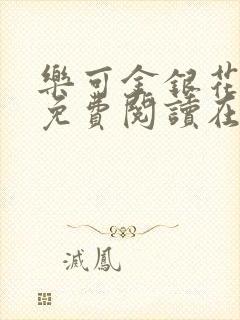 樂可金銀花
免費閱讀在
滅鳳